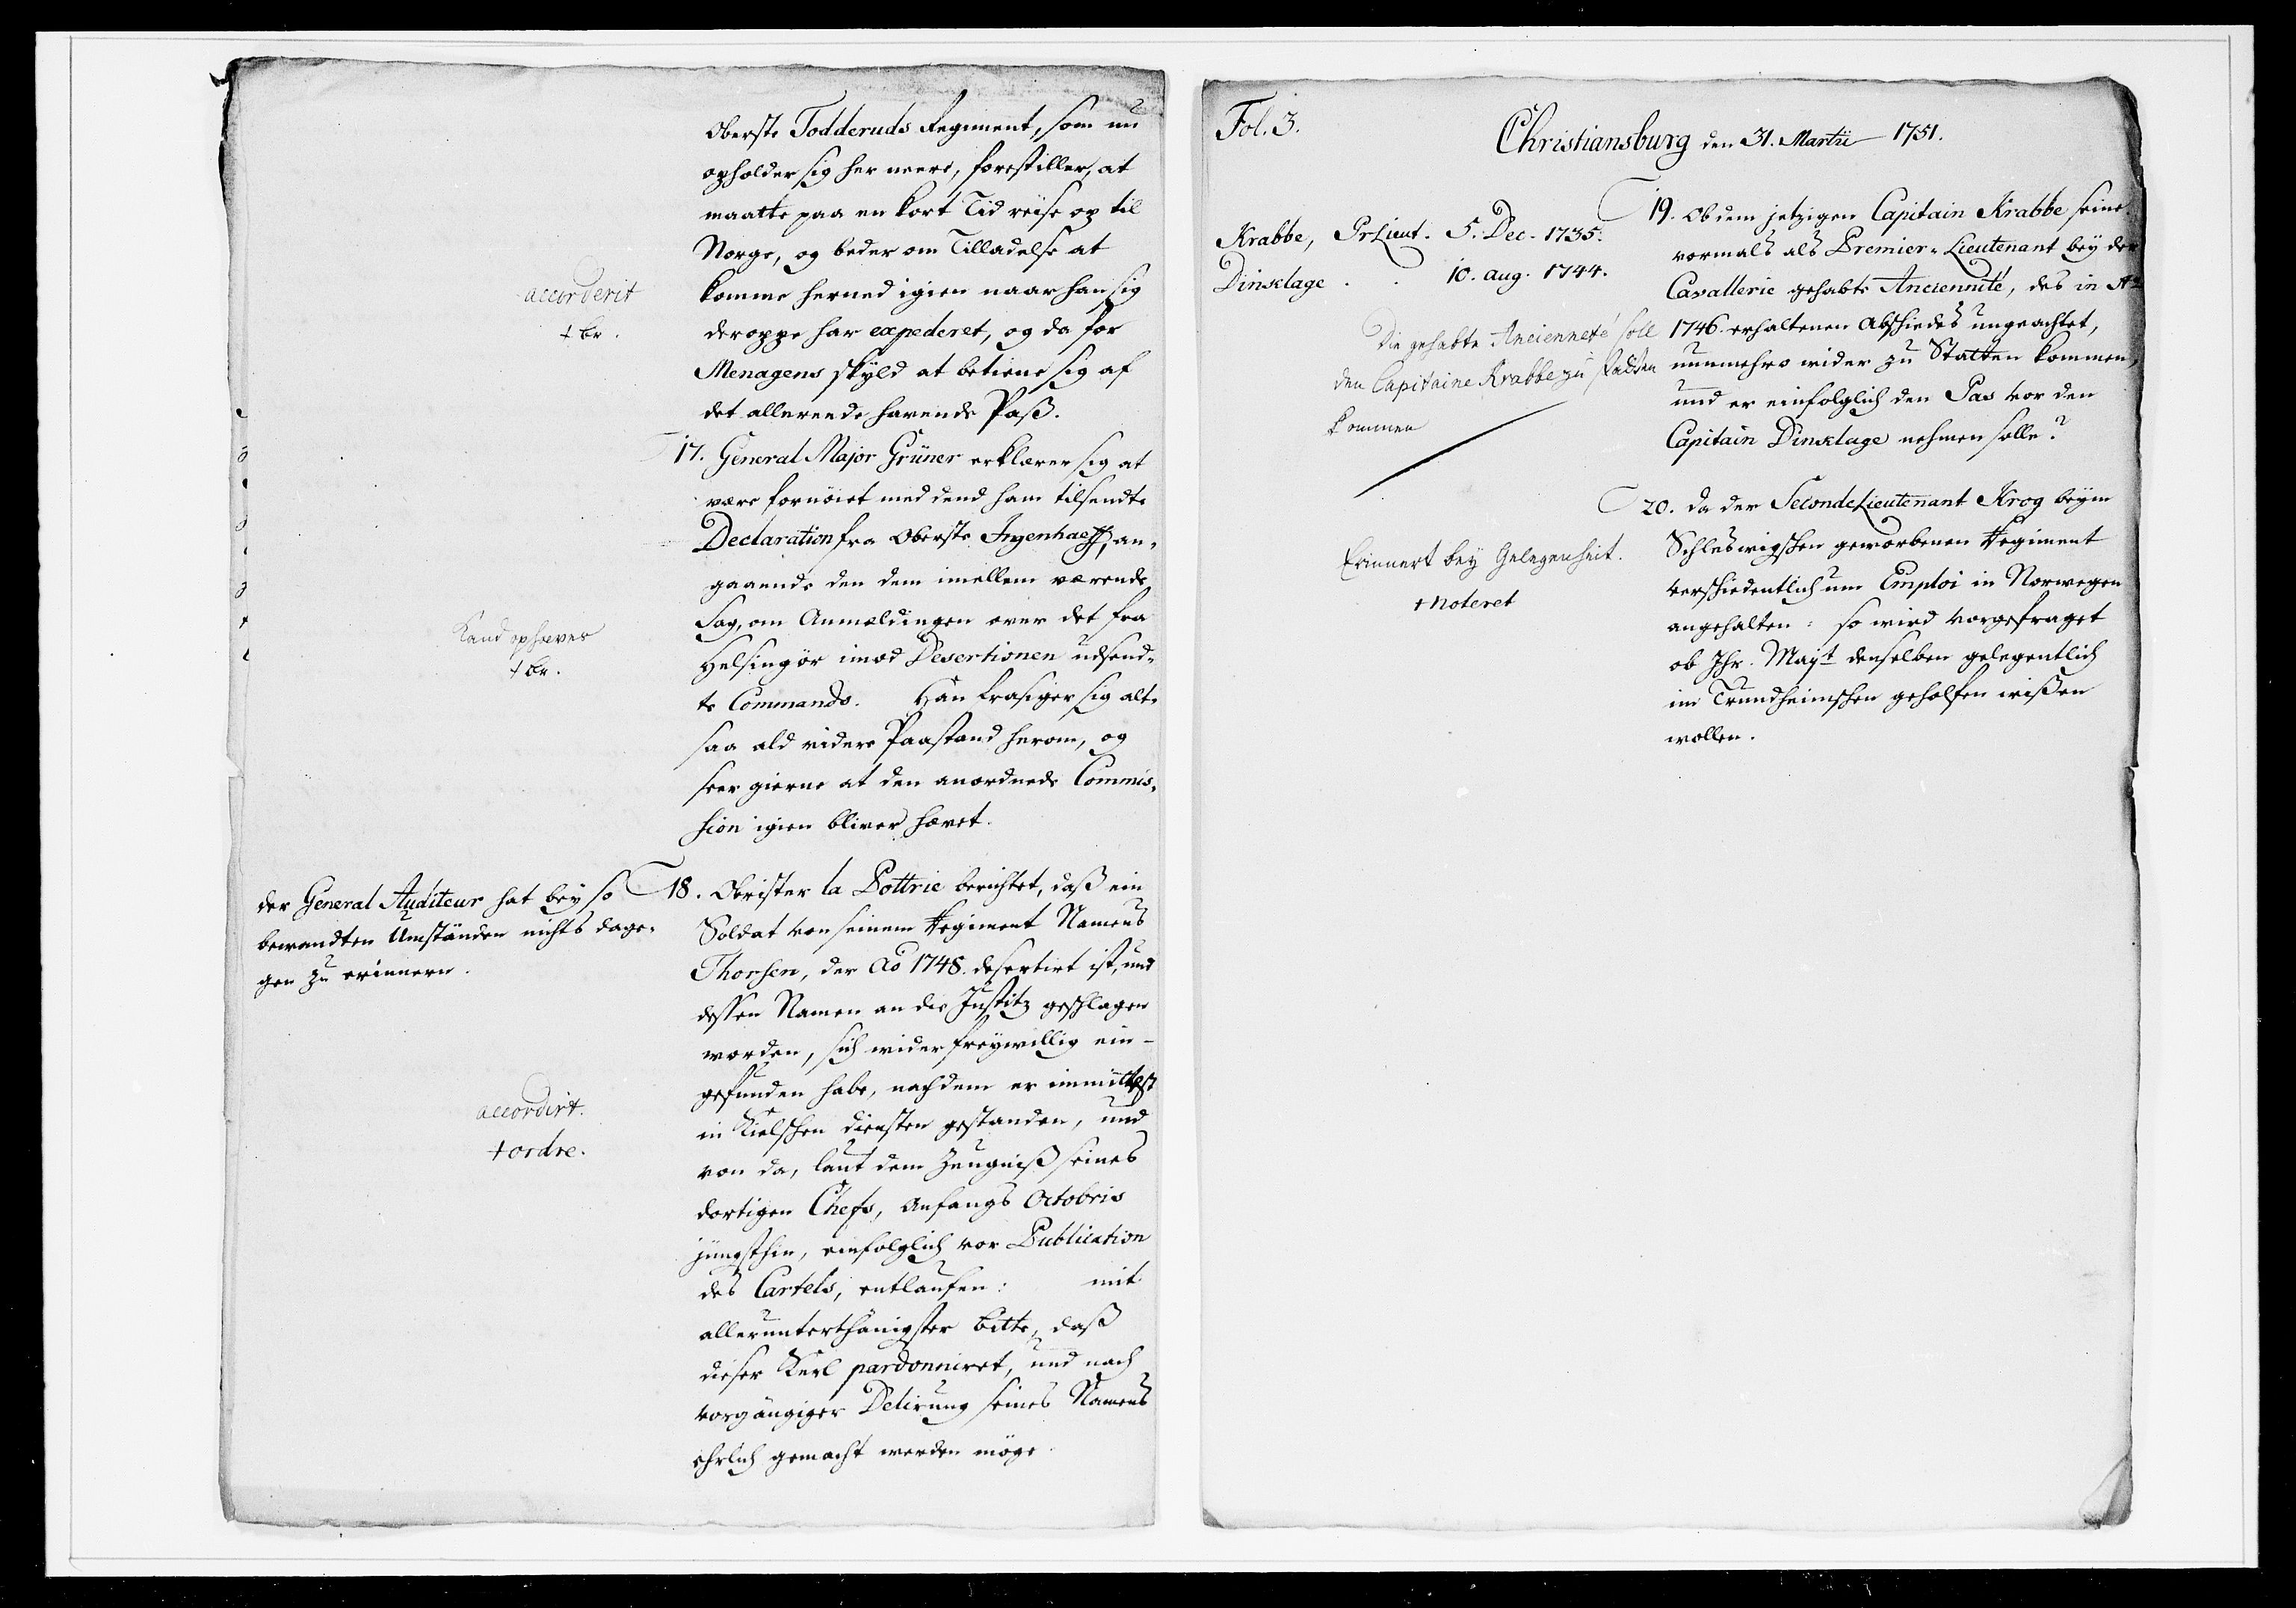 Oberste Todderuds Regiment, som nu
opholder sig her neere, forestiller, at
maatte paa en kort Tid reise op til
Norge, og beder om Tilladelse at
komme herned igien naar han sig
deroppe har expederet, og da for
Menagens skyld at betiene sig af
det allerede havende Pass.
accorderit
+ br.
17. General Major Grüner erklærer sig at
være fornöiet med dend ham tilsendte
Declaration fra Oberste Ingenhaeff, an-
gaaende den dem imellem værende
Sag, om Anmældingen over det fra
Helsingör imod Desertionen udsend-
te Commando. Han frasiger sig alt-
saa ald videre Paastand herom, og
seer gierne at den anordnede Commis-
sion igien bliver hævet.
Kand ophæves
+ br.
18. Obrister la Pottrie berichtet, daß ein
Soldat von seinem Regiment Namens
Thorsen, der Ao 1748. desertirt ist, und
dessen Namen an die Justitz geschlagen
worden, sich wider freywillig ein-
gefunden habe, nachdem er immittelst
in Kielschen diensten gestanden, und
von da, laut dem Zeugniß seines
dortigen Chefs, Anfangs Octobris
jüngsthin, einfolglich vor Publication
des Cartels, entlaufen: mit
allerunterthänigster bitte, daß
dieser Kerl pardonniret, und nach
vorgängiger Delirung seines Namens
ehrlich gemacht werden möge
der General Auditeur hat bey so
bewandten Umständen nichts dage-
gen zu erinnern.
accordirt.
+ ordre.
Fol. 3.
Christiansburg den 31. Martii 1751.
19. Ob dem jetzigen Capitain Krabbe seine
vormals als Premier-Lieutenant bey der
Cavallerie gehabte Anciennité, des in Ao
1746. erhaltenen Abschiedes ungeachtet,
nunmehro wider zu Statten kommen,
und er einfolglich den Pas vor den
Capitain Dinklage nehmen solle?
Krabbe, PrLieut. 5. Dec. 1735.
Dinklage . . 10. aug. 1744.
Die gehabte Ancienneté soll
den Capitaine Krabbe zu statten
kommen
20. da der SecondeLieutenant Krog beym
Schleswigschen geworbenen Regiment
verschiedentlich um Emploi in Norwegen
angehalten: so wird vorgefraget
ob Ihr. Mayt denselben gelegentlich
im Trundheimschen geholfen wißen
wollen.
Erinnert bey Gelegenheit.
+ Noteret